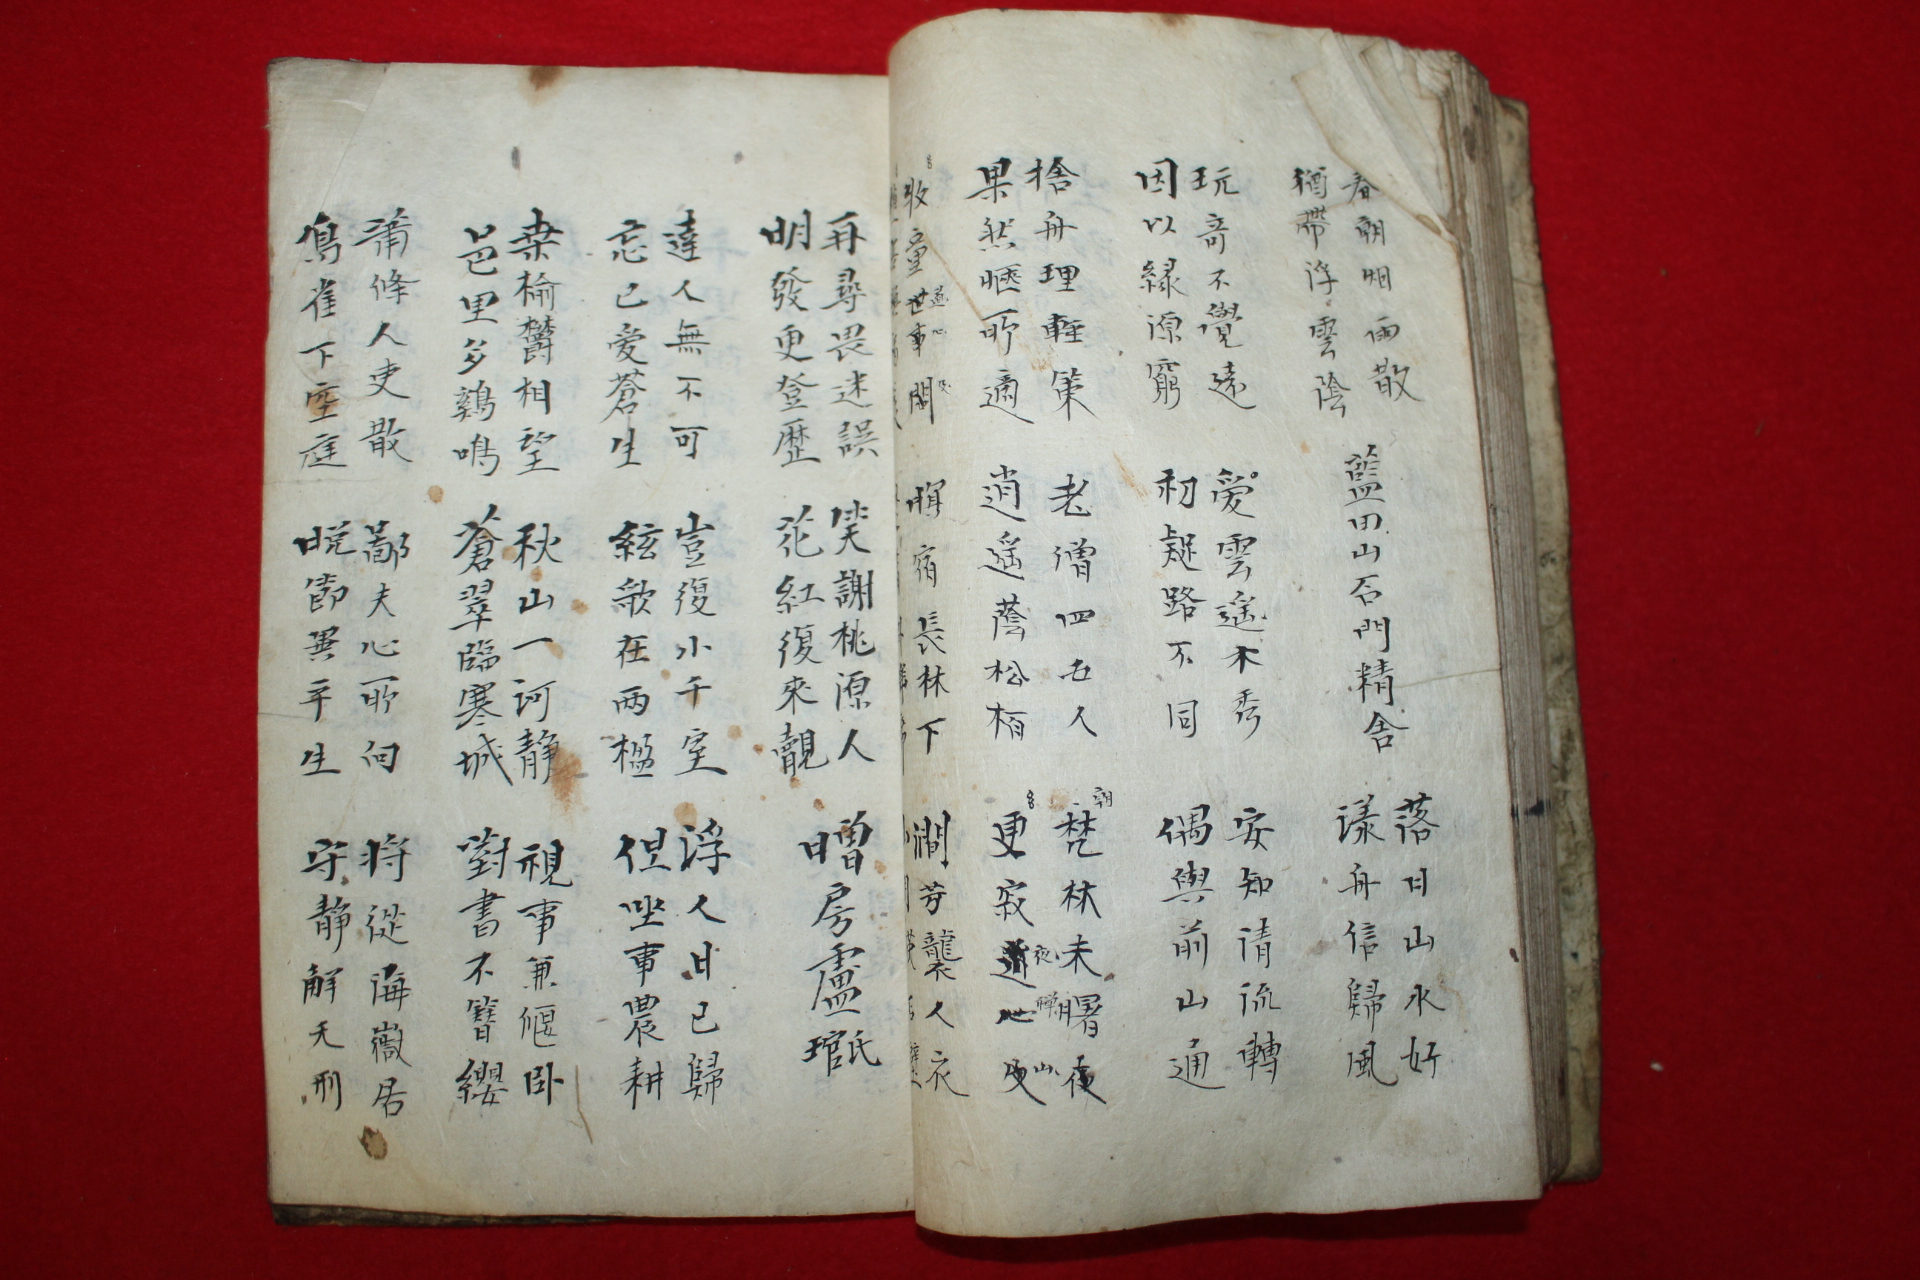 春朝烟雨散
猶帶浮雲陰
藍田山石門精舍
落日山水好
漾舟信歸風
玩奇不覺遠
因以緣源窮
愛雲遙木秀
初疑路不同
安知清流轉
偶與前山通
捨舟理輕策
果然愜所適
老僧四五人
逍遙蔭松栢
朝
梵林未曙夜
夜禪山
更寂道心及
牧童世事問
道心及
暝宿長林下
澗芳襲人衣
再尋畏迷誤
明發更登歷
笑謝桃源人
花紅復來覿
贈房盧氏琯
達人無不可
忘已愛蒼生
豈復小千室
絃歌在兩楹
浮人日已歸
但坐事農耕
桒榆鬱相望
邑里多鷄鳴
秋山一訶靜
蒼翠臨寒城
視事兼偃卧
對書不簪纓
蕭條人吏散
鳥雀下空庭
鄙夫心所向
晩節異平生
將從海嶽居
守靜解天刑